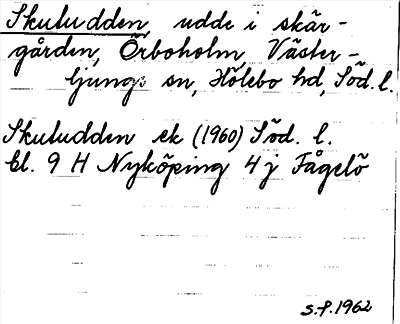 Skutudden, udde i skär-
gården, Örboholm, Väster-
ljungs sn, Hölebo hd, Söd. l.
Skutudden ek (1960) Söd. l.
bl. 9 H Nyköping 4 j Fågelö
S.F. 1962